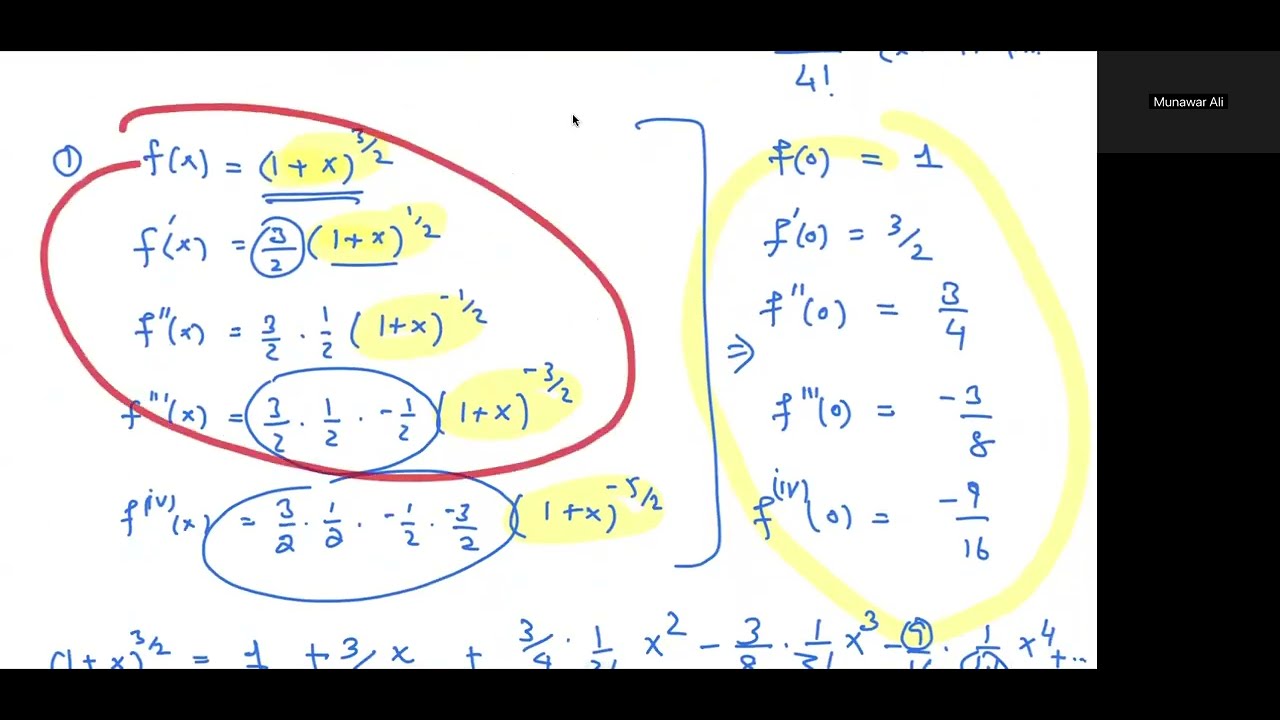 4!
Munawar Ali
① f(x) = (1 + x)^3/2
f'(x) = 3/2 (1 + x)^1/2
f''(x) = 3/2 · 1/2 (1+x)^-1/2
f'''(x) = 3/2 · 1/2 · -1/2 (1+x)^-3/2
f^(iv)(x) = 3/2 · 1/2 · -1/2 · -3/2 (1+x)^-5/2
⇒
f(0) = 1
f'(0) = 3/2
f''(0) = 3/4
f'''(0) = -3/8
f^(iv)(0) = -9/16
(1+x)^3/2 = 1 + 3/ x + 3/4 · 1/2! x^2 - 3/8 · 1/3! x^3 - 9/16 · 1/ x^4 + ...